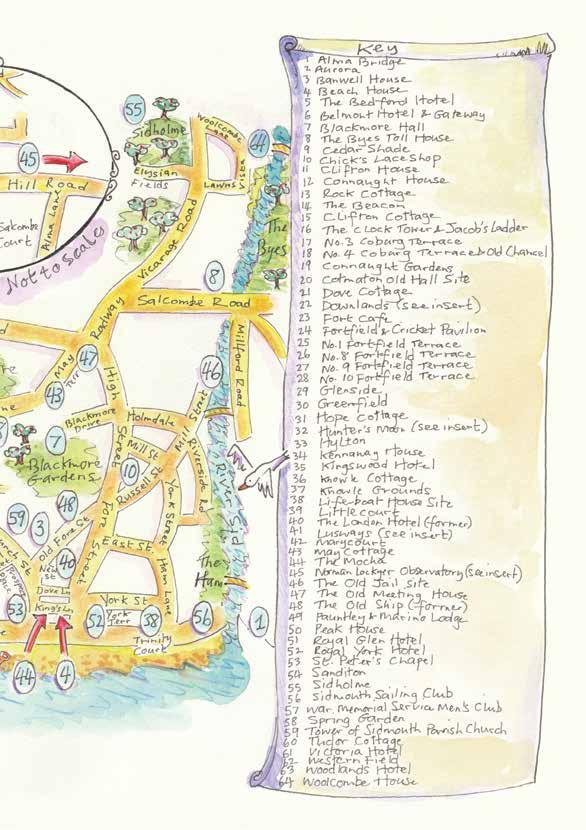 Key
1 Alma Bridge
2 Aurora
3 Banwell House
4 Beach House
5 The Bedford Hotel
6 Belmont Hotel & Gateway
7 Blackmore Hall
8 The Byes Toll House
9 Cedar Shade
10 Chick's Lace Shop
11 Clifton House
12 Connaught House
13 Rock Cottage
14 The Beacon
15 Clifton Cottage
16 The Clock Tower & Jacob's Ladder
17 No. 3 Coburg Terrace
18 No. 4 Coburg Terrace & Old Chancel
19 Connaught Gardens
20 Cotmaton Old Hall Site
21 Dove Cottage
22 Downlands (see insert)
23 Fort Cafe
24 Fortfield & Cricket Pavilion
25 No. 1 Fortfield Terrace
26 No. 8 Fortfield Terrace
27 No. 9 Fortfield Terrace
28 No. 10 Fortfield Terrace
29 Glenside
30 Greenfield
31 Hope Cottage
32 Hunter's Moon (see insert)
33 Hylton
34 Kennaway House
35 Kingswood Hotel
36 Knowle Cottage
37 Knowle Grounds
38 Lifeboat House Site
39 Littlecourt
40 The London Hotel (former)
41 Lusways (see insert)
42 Marycourt
43 May Cottage
44 The Mocha
45 Norman Lockyer Observatory (see insert)
46 The Old Jail Site
47 The Old Meeting House
48 The Old Ship (former)
49 Pauntley & Marino Lodge
50 Peak House
51 Royal Glen Hotel
52 Royal York Hotel
53 St. Peter's Chapel
54 Sanditon
55 Sidholme
56 Sidmouth Sailing Club
57 War Memorial Service Men's Club
58 Spring Garden
59 Tower of Sidmouth Parrish Church
60 Tudor Cottage
61 Victoria Hotel
62 Western Field
63 Woodlands Hotel
64 Woolcombe House
55
Sidholme
Woolcombe
Lane
64
45
Elysian
Fields
Lawns
Vista
Hill Road
Alma Lane
Salcombe
Court
Not to Scale
Vicarage Road
The
Byes
8
Salcombe Road
Radway
Milford Road
47
May
Terr
43
High
Street
46
Blackmore
Drive
Holmdale
Mill Street
7
Mill St
Riverside Rd
Blackmore
Gardens
10
Russell St
River Sid
48
59
3
Old Fore St
Fore Street
York Street
Church St
40
New
St
East St
Ham Lane
The
Ham
Dove Ln
53
King's Ln
York St
52
York
Terr
58
56
1
Trinity
Court
44
4